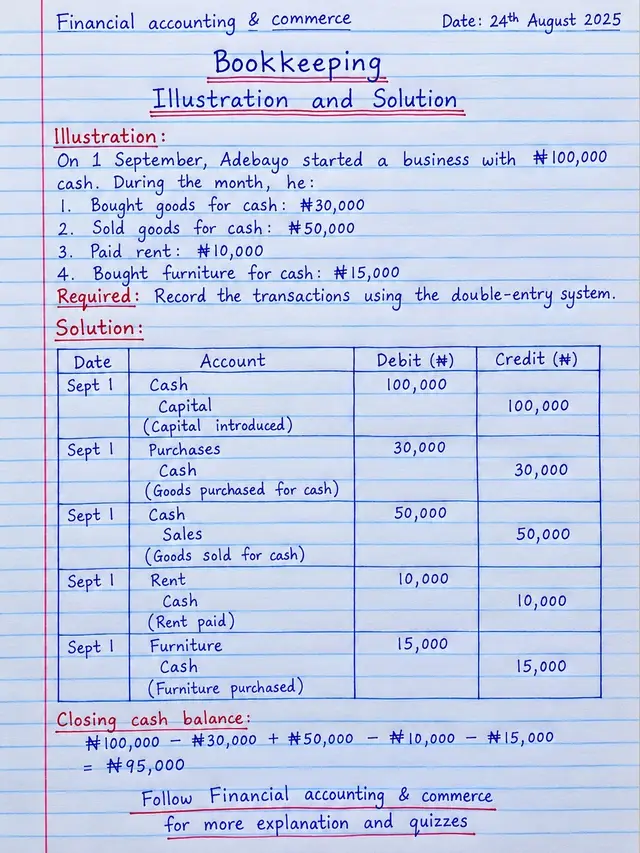 Financial accounting & commerce Date: 24th August 2025
Bookkeeping
Illustration and Solution
Illustration:
On 1 September, Adebayo started a business with ₦100,000
cash. During the month, he:
1. Bought goods for cash: ₦30,000
2. Sold goods for cash: ₦50,000
3. Paid rent: ₦10,000
4. Bought furniture for cash: ₦15,000
Required: Record the transactions using the double-entry system.
Solution:
Date Account Debit (₦) Credit (₦)
Sept 1 Cash 100,000
Capital 100,000
(Capital introduced)
Sept 1 Purchases 30,000
Cash 30,000
(Goods purchased for cash)
Sept 1 Cash 50,000
Sales 50,000
(Goods sold for cash)
Sept 1 Rent 10,000
Cash 10,000
(Rent paid)
Sept 1 Furniture 15,000
Cash 15,000
(Furniture purchased)
Closing cash balance:
₦100,000 − ₦30,000 + ₦50,000 − ₦10,000 − ₦15,000
= ₦95,000
Follow Financial accounting & commerce
for more explanation and quizzes